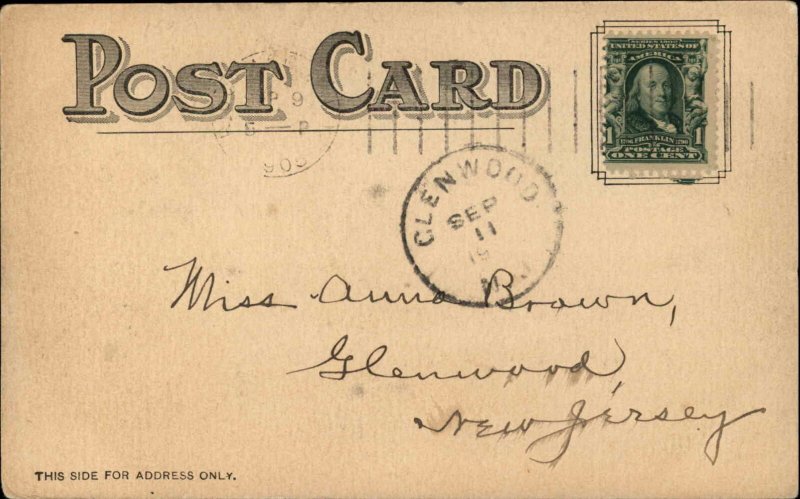 POST CARD
P 9
5 - P
SERIES 1902
UNITED STATES OF
AMERICA
1 FRANKLIN 1
POSTAGE
ONE CENT
GLENWOOD
SEP
11
19
N.J.
Miss Anna Brown,
Glenwood,
New Jersey
THIS SIDE FOR ADDRESS ONLY.